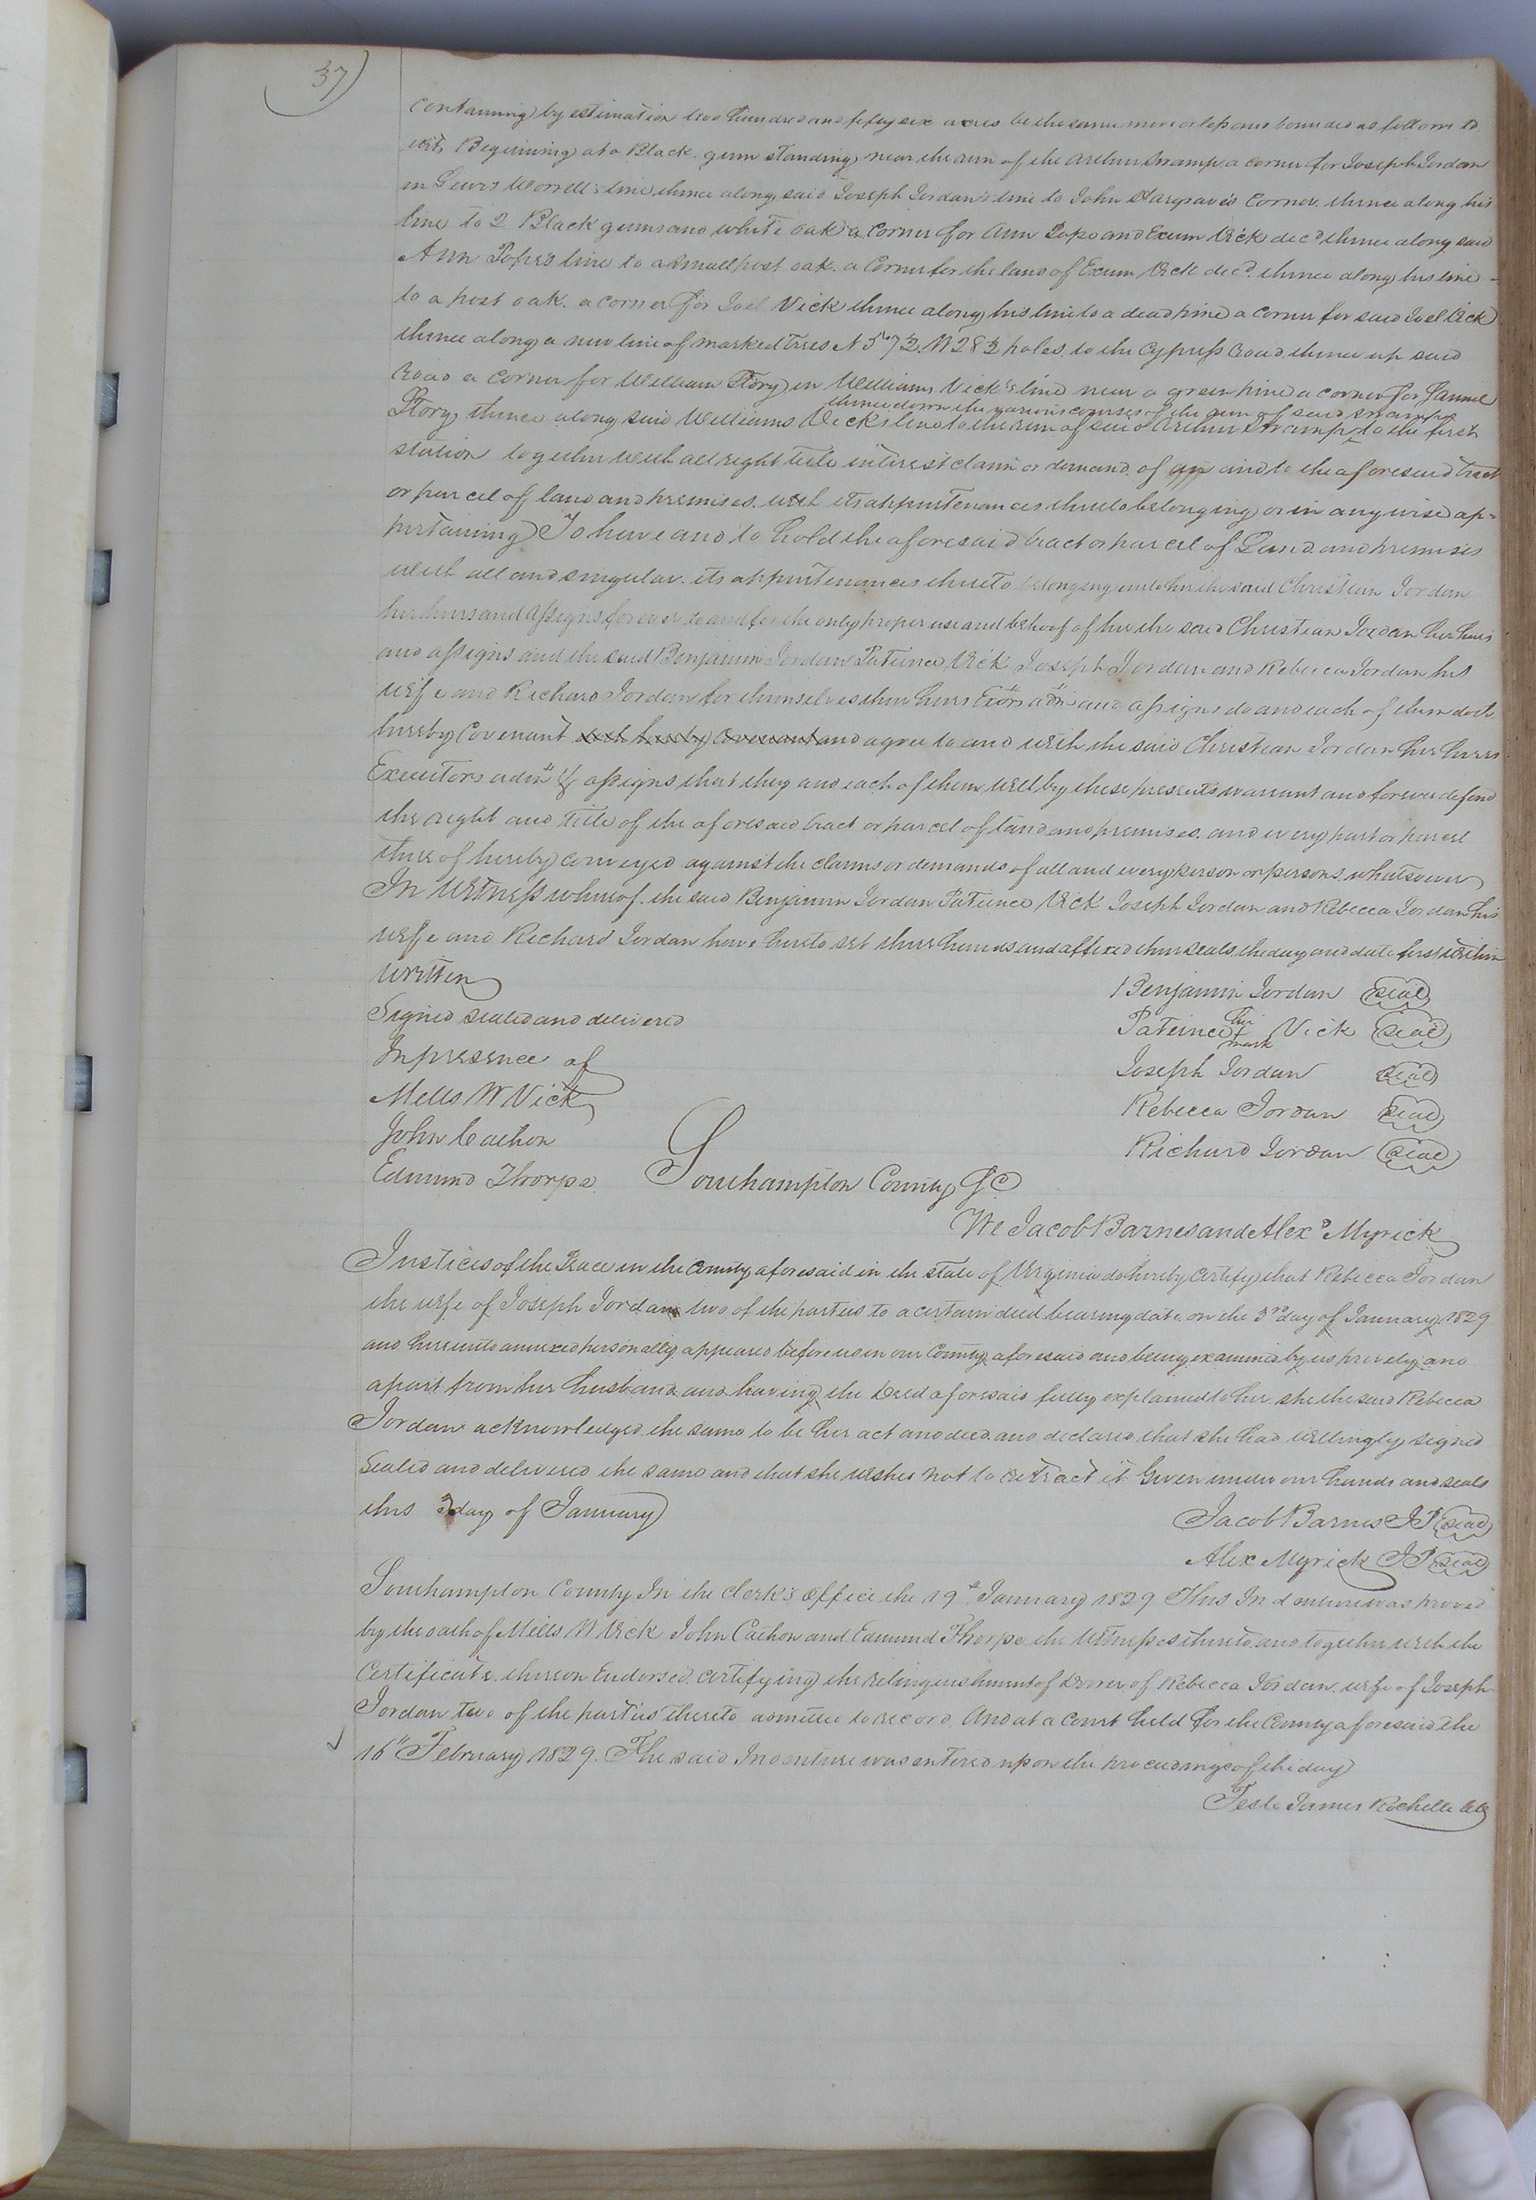 37
containing by estimation two hundred and fifty six acres be the same more or less and bounded as follows to
wit, Beginning at a Black gum standing near the run of the Arthur Swamp a corner for Joseph Jordan
in Lewis Worrell's line thence along said Joseph Jordan's line to John Hargrave's Corner thence along his
line to 2 Black gums and white oak a corner for Ann Pope and Exum Vick decd thence along said
Ann Pope's line to a small post oak a Corner for the land of Exum Vick decd. thence along his line
to a post oak a corner for Joel Vick thence along his line to a dead pine a corner for said Joel Vick
thence along a new line of marked trees N 57½ W 283 poles to the Cypress Road thence up said
Road a Corner for William Story in Williams Vick's line near a green pine a corner for Samuel
thence down the various courses of the run of said swamp
Story, thence along said Williams Vicks line to the run of said Arthur Swamp to the first
station together with all right title interest claim or demand of in and to the aforesaid tract
or parcel of land and premises with its appurtenances thereto belonging or in any wise ap=
pertaining To have and to hold the aforesaid tract or parcel of Land and premises
with all and singular its appurtenances thereto belonging unto her the said Christian Jordan
her heirs and assigns forever to and for the only proper use and behoof of her the said Christian Jordan her heirs
and assigns and the said Benjamin Jordan Patience Vick Joseph Jordan and Rebecca Jordan his
wife and Richard Jordan for themselves their heirs Exors adms and assigns do and each of them doth
hereby Covenant doth hereby Covenant and agree to and with the said Christian Jordan her heirs
Executors admrs & assigns that they and each of them will by these presents warrant and forever defend
the right and title of the aforesaid tract or parcel of land and premises and every part or parcel
thereof hereby conveyed against the claims or demands of all and every person or persons whatsoever
In Witness whereof the said Benjamin Jordan Patience Vick Joseph Jordan and Rebecca Jordan his
wife and Richard Jordan have hereto set their hands and affixed their seals the day and date first within
written
Benjamin Jordan seal
Signed sealed and delivered
Patience her mark Vick seal
In presence of
Joseph Jordan seal
Mills W Vick
Rebecca Jordan seal
John Cathon
Richard Jordan seal
Edmund Thorpe
Southampton County Sc
We Jacob Barnes and Alexr Myrick
Justices of the Peace in the County aforesaid in the state of Virginia do hereby certify that Rebecca Jordan
the wife of Joseph Jordan two of the parties to a certain deed bearing date on the 3rd day of January 1829
and hereunto annexed personally appeared before us in our County aforesaid and being examined by us privily and
apart from her husband and having the Deed aforesaid fully explained to her she the said Rebecca
Jordan acknowledged the same to be her act and deed and declared that she had willingly signed
Sealed and delivered the same and that she wishes not to retract it Given under our hands and seals
this 3 day of January
Jacob Barnes JP seal
Alex Myrick JP seal
Southampton County In the Clerk's Office the 19th January 1829 This Indenture was proved
by the oath of Mills W Vick John Cathon and Edmund Thorpe the Witnesses thereto and together with the
Certificate thereon Endorsed certifying the relinquishment of Dower of Rebecca Jordan wife of Joseph
Jordan two of the parties thereto admitted to record. And at a Court held for the County aforesaid the
16th February 1829. The said Indenture was entered upon the proceedings of the day
Teste James Rochelle Clk